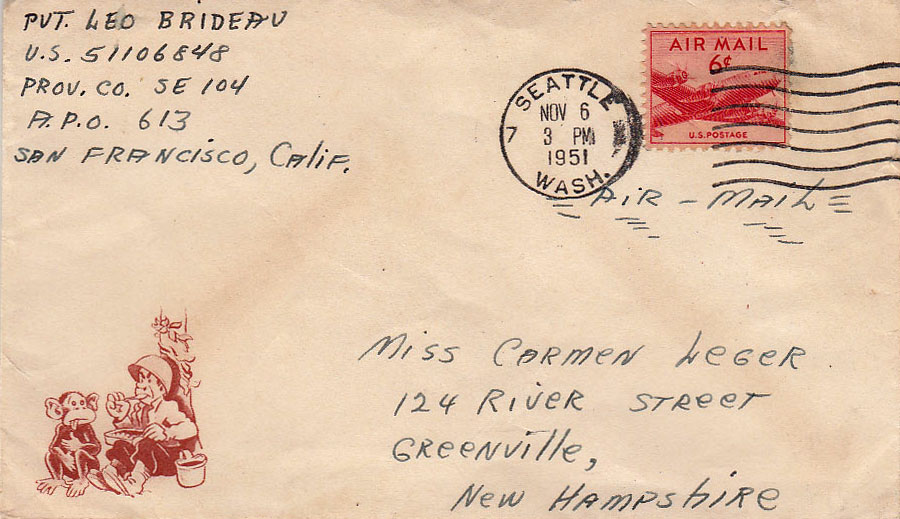 PVT. LEO BRIDEAU
U.S. 51106848
PROV. CO. SE 104
A.P.O. 613
SAN FRANCISCO, CALIF.
AIR MAIL
6¢
U.S. POSTAGE
SEATTLE
NOV 6
3 PM
1951
WASH.
7
AIR - MAIL
MISS CARMEN LEGER
124 RIVER STREET
GREENVILLE,
NEW HAMPSHIRE